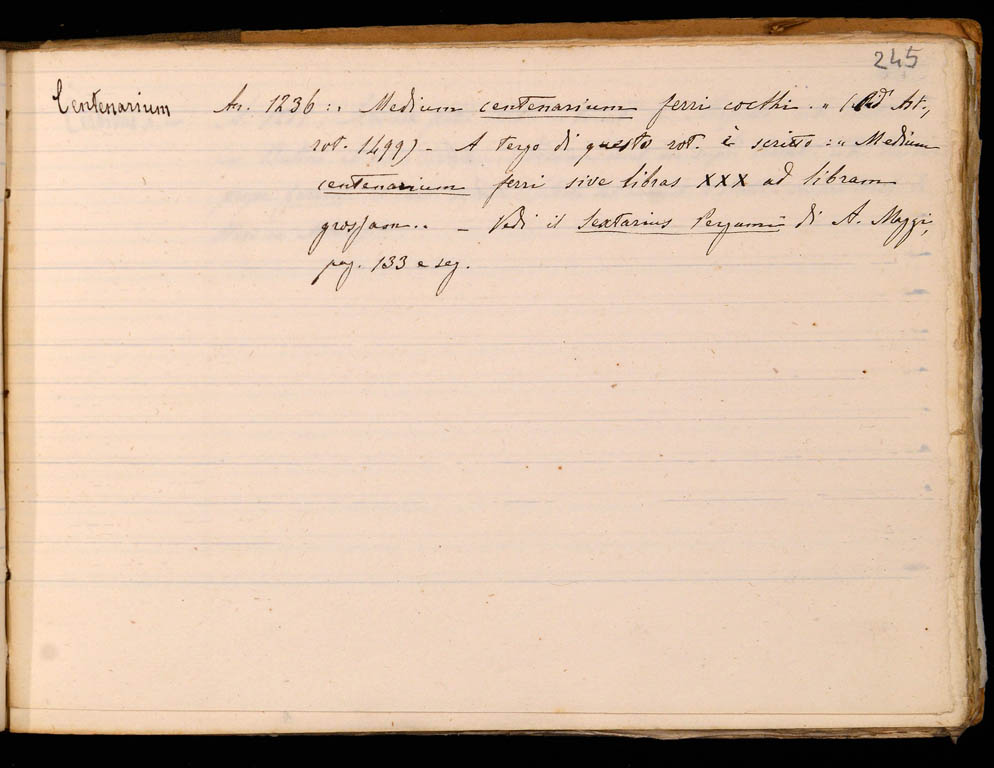 245
Centenarium An. 1236 :„ Medium centenarium ferri cocthi . „ (Pd Ast.,
rot. 1499) - A tergo di questo rot. è scritto :„ Medium
centenarium ferri sive libras XXX ad libram
grossam.. - Vedi il Sextarius Pergami di A. Mazzi,
pag. 133 e seg.